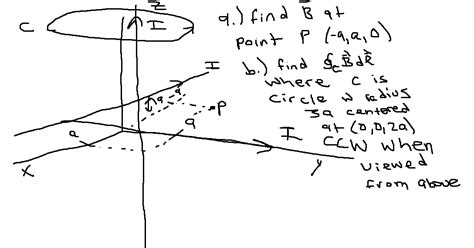 a.) find B⃗ at
point P (-a,a,0)
b.) find ∮c B⃗ dR⃗
where C is
circle w radius
3a centered
at (0,0,2a)
CCW when
viewed
from above
C
I
I
a
a
P
a
a
I
X
y